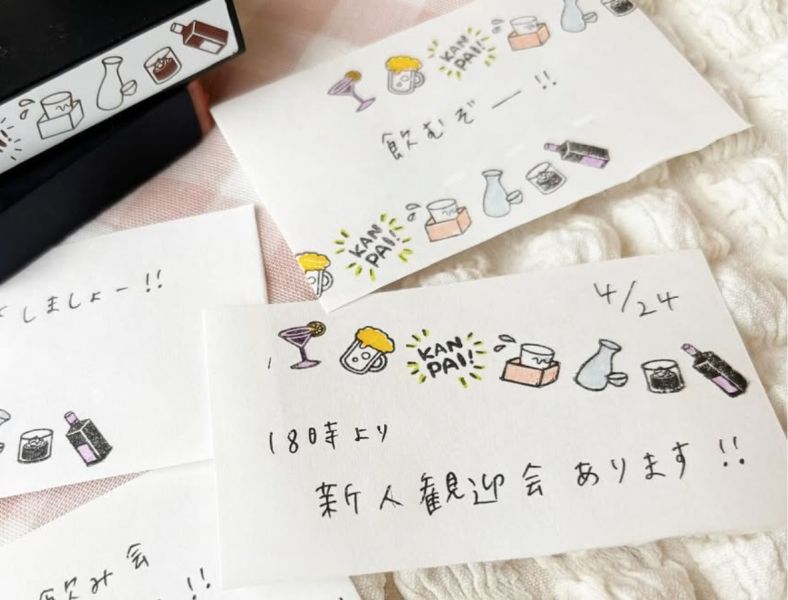 KAN
PAI!
飲むぞー!!
KAN
PAI!
しましょー!!
4/24
KAN
PAI!
18時より
新人観迎会あります!!
飲み会
!!